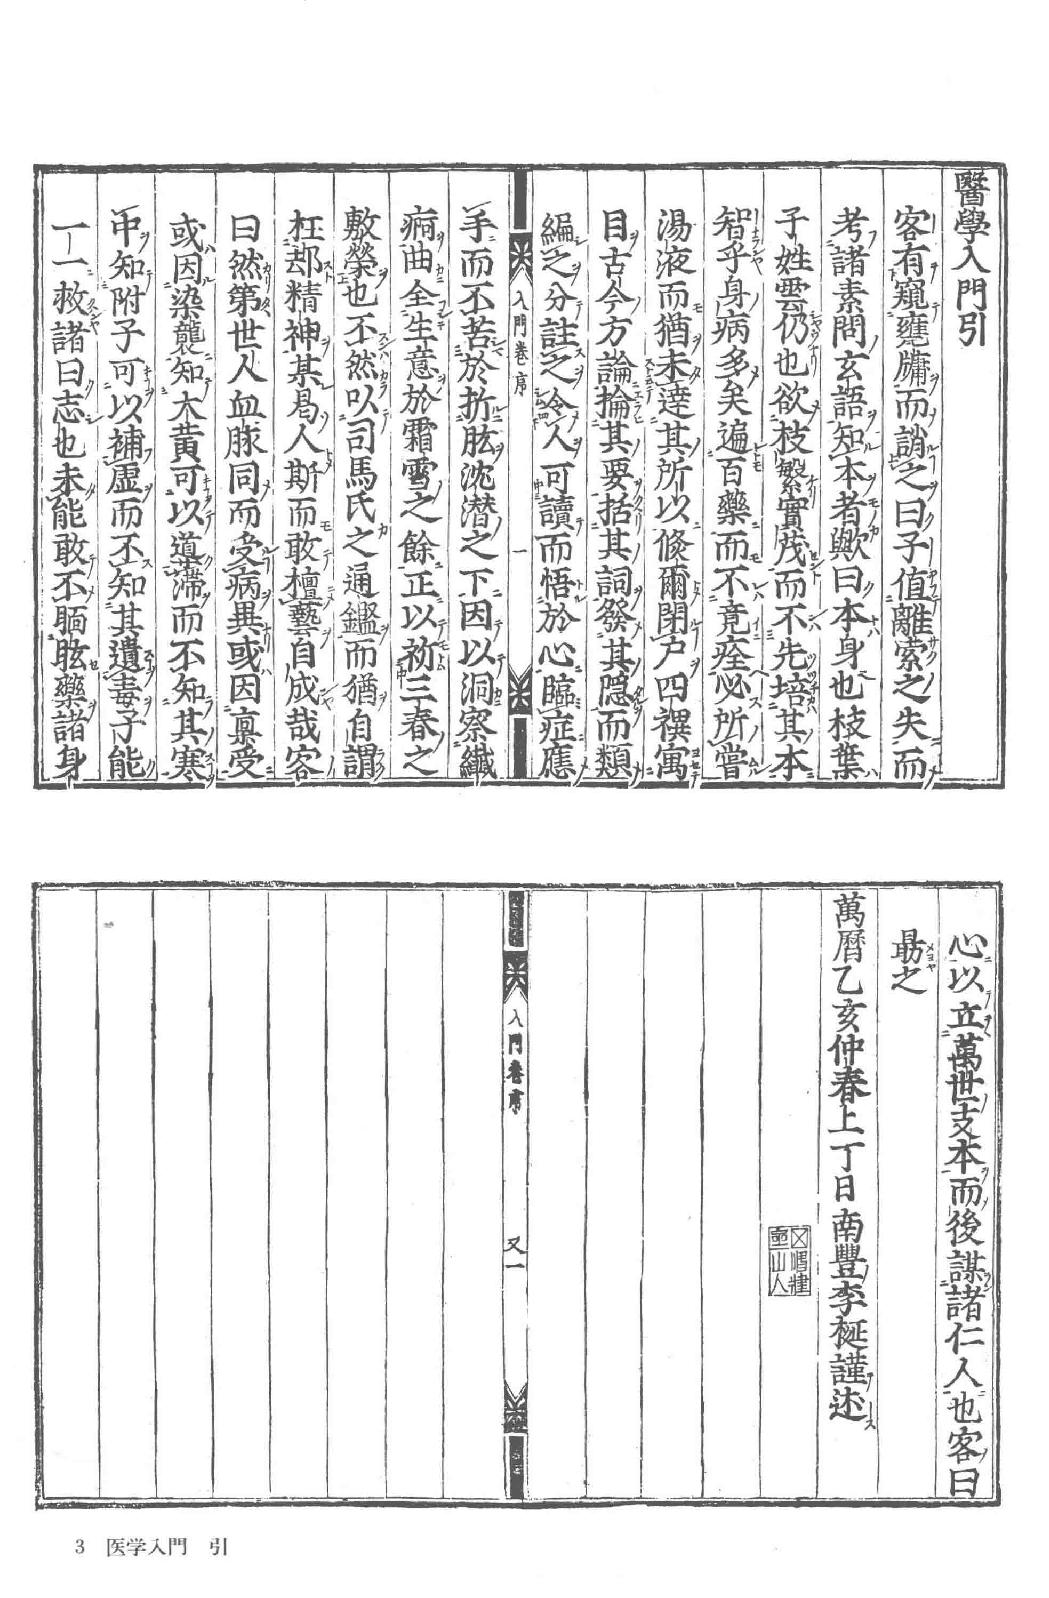 醫學入門引
客有窺甕牖而誚之曰子值離索之失而
考諸素問玄語知本者歟曰本身也枝葉
子姓雲仍也欲枝繁實茂而不先培其本
智乎身病多矣遍百藥而不竟痊必所嘗
湯液而猶未達其所以倏爾閉户四禩寓
目古今方論掄其要括其詞發其隱而類
編之分註之令人可讀而悟於心臨症應
手而不苦於折肱沈潛之下因以洞察纖
痾曲全生意於霜雪之餘正以礽三春之
敷榮也不然以司馬氏之通鑑而猶自謂
枉却精神某曷人斯而敢擅藝自成哉客
曰然第世人血脉同而受病異或因禀受
或因染襲知大黄可以道滯而不知其寒
中知附子可以補虛而不知其遺毒子能
一一救諸曰志也未能敢不瞑眩藥諸身
入門卷序
一
心以立萬世之本而後謀諸仁人也客曰
勗之
萬曆乙亥仲春上丁日南豐李梴謹述
入門卷序
又一
3 医学入門 引